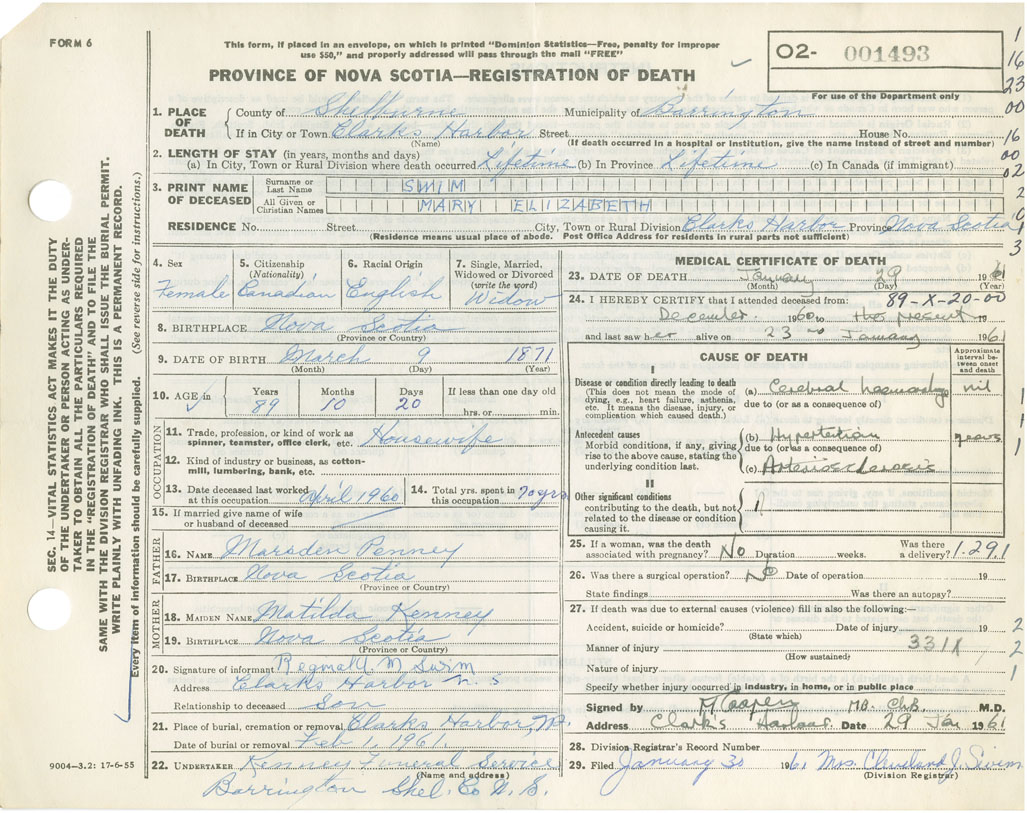 FORM 6
This form, if placed in an envelope, on which is printed "Dominion Statistics—Free, penalty for improper
use $50," and properly addressed will pass through the mail "FREE"
PROVINCE OF NOVA SCOTIA—REGISTRATION OF DEATH
O2- 001493
For use of the Department only
1. PLACE OF DEATH
County of Shelburne Municipality of Barrington
If in City or Town Clarks Harbor Street House No.
(Name) (If death occurred in a hospital or institution, give the name instead of street and number)
2. LENGTH OF STAY (in years, months and days)
(a) In City, Town or Rural Division where death occurred Lifetime (b) In Province Lifetime (c) In Canada (if immigrant)
3. PRINT NAME OF DECEASED
Surname or Last Name SWIM
All Given or Christian Names MARY ELIZABETH
RESIDENCE No. Street City, Town or Rural Division Clarks Harbor Province Nova Scotia
(Residence means usual place of abode. Post Office Address for residents in rural parts not sufficient)
4. Sex
Female
5. Citizenship
(Nationality)
Canadian
6. Racial Origin
English
7. Single, Married,
Widowed or Divorced
(write the word)
Widow
8. BIRTHPLACE Nova Scotia
(Province or Country)
9. DATE OF BIRTH March 9 1871
(Month) (Day) (Year)
10. AGE in
Years Months Days If less than one day
89 10 20 hrs. or min.
OCCUPATION
11. Trade, profession, or kind of work as
spinner, teamster, office clerk, etc. Housewife
12. Kind of industry or business, as cotton-
mill, lumbering, bank, etc.
13. Date deceased last worked
at this occupation April 1960
14. Total yrs. spent in
this occupation 70 yrs
15. If married give name of wife
or husband of deceased
FATHER
16. NAME Marsden Penney
17. BIRTHPLACE Nova Scotia
(Province or Country)
MOTHER
18. MAIDEN NAME Matilda Kenney
19. BIRTHPLACE Nova Scotia
(Province or Country)
20. Signature of informant Reginald M Swim
Address Clarks Harbor N. S
Relationship to deceased Son
21. Place of burial, cremation or removal Clarks Harbor, N.S.
Date of burial or removal Feb 1, 1961.
22. UNDERTAKER Kenney Funeral Service
(Name and address)
Barrington Shel. Co N. S.
MEDICAL CERTIFICATE OF DEATH
23. DATE OF DEATH January 29 1961
(Month) (Day) (Year)
24. I HEREBY CERTIFY that I attended deceased from: 89-X-20-00
December 1960 to the present 19
and last saw her alive on 23 January 1961
CAUSE OF DEATH
Approximate
interval be-
tween onset
and death
I
Disease or condition directly leading to death
(This does not mean the mode of
dying, e.g., heart failure, asthenia,
etc. It means the disease, injury, or
complication which caused death.)
(a) Cerebral haemorrhage nil
due to (or as a consequence of)
Antecedent causes
Morbid conditions, if any, giving
rise to the above cause, stating the
underlying condition last.
(b) Hypertension years
due to (or as a consequence of)
(c) Arteriosclerosis
II
Other significant conditions
contributing to the death, but not
related to the disease or condition
causing it.
25. If a woman, was the death
associated with pregnancy? No Duration weeks. Was there
a delivery? 1.291
26. Was there a surgical operation? No Date of operation 19
State findings Was there an autopsy?
27. If death was due to external causes (violence) fill in also the following:—
Accident, suicide or homicide? Date of injury 19
(State which)
Manner of injury 331X
(How sustained)
Nature of injury
Specify whether injury occurred in industry, in home, or in public place
Signed by M Cooper M.B. Ch.B. M.D.
Address Clark's Harbour. Date 29 Jan 1961
28. Division Registrar's Record Number
29. Filed January 30 1961 Mrs. Cleveland J. Swim
(Division Registrar)
SEC. 14—VITAL STATISTICS ACT MAKES IT THE DUTY
OF THE UNDERTAKER OR PERSON ACTING AS UNDER-
TAKER TO OBTAIN ALL THE PARTICULARS REQUIRED
IN THE "REGISTRATION OF DEATH" AND TO FILE THE
SAME WITH THE DIVISION REGISTRAR WHO SHALL ISSUE THE BURIAL PERMIT.
WRITE PLAINLY WITH UNFADING INK. THIS IS A PERMANENT RECORD.
Every item of information should be carefully supplied. (See reverse side for instructions.)
9004—3.2: 17-6-55
1
16
23
00
16
00
02
2
0
1
3
1
1
1
2
2
1